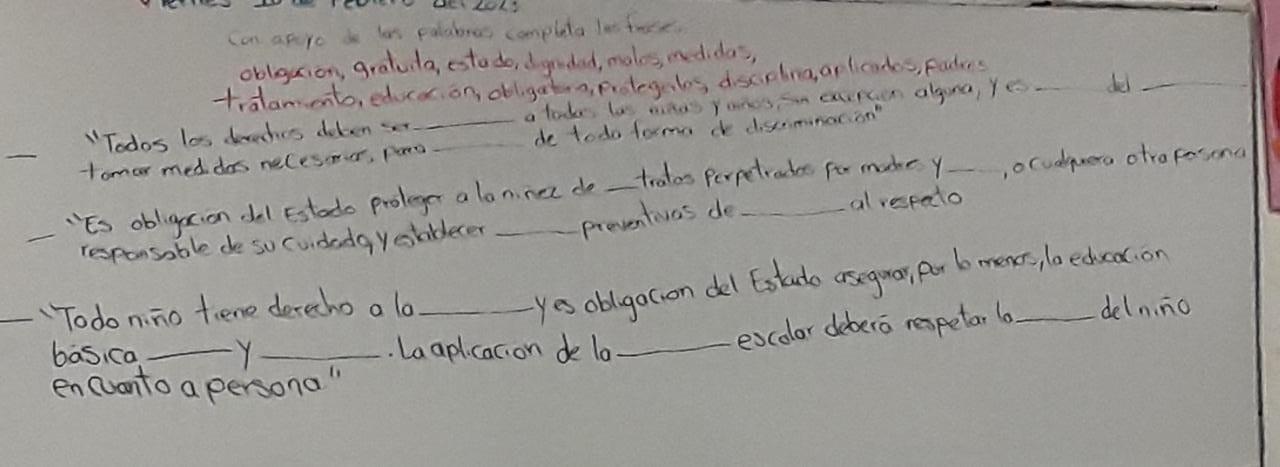 Viernes 10 de Febrero del 2023
Con apoyo de las palabras completa las frases.
obligación, gratuita, estado, dignidad, malos, medidas,
tratamiento, educación, obligatoria, protegerlos, disciplina, aplicados, padres
"Todos los derechos deben ser ______ a todas las niñas y niños, sin excepción alguna, y es ____ del ______
tomar medidas necesarias, para ______ de toda forma de discriminación"
"Es obligación del Estado proteger a la niñez de __ tratos perpetrados por madres y ___, o cualquiera otra persona
responsable de su cuidado, y establecer _____ preventivas de ______ al respecto
"Todo niño tiene derecho a la ______ y es obligación del Estado asegurar, por lo menos, la educación
básica _____ y ______. La aplicación de la ______ escolar deberá respetar la _____ del niño
en cuanto a persona"